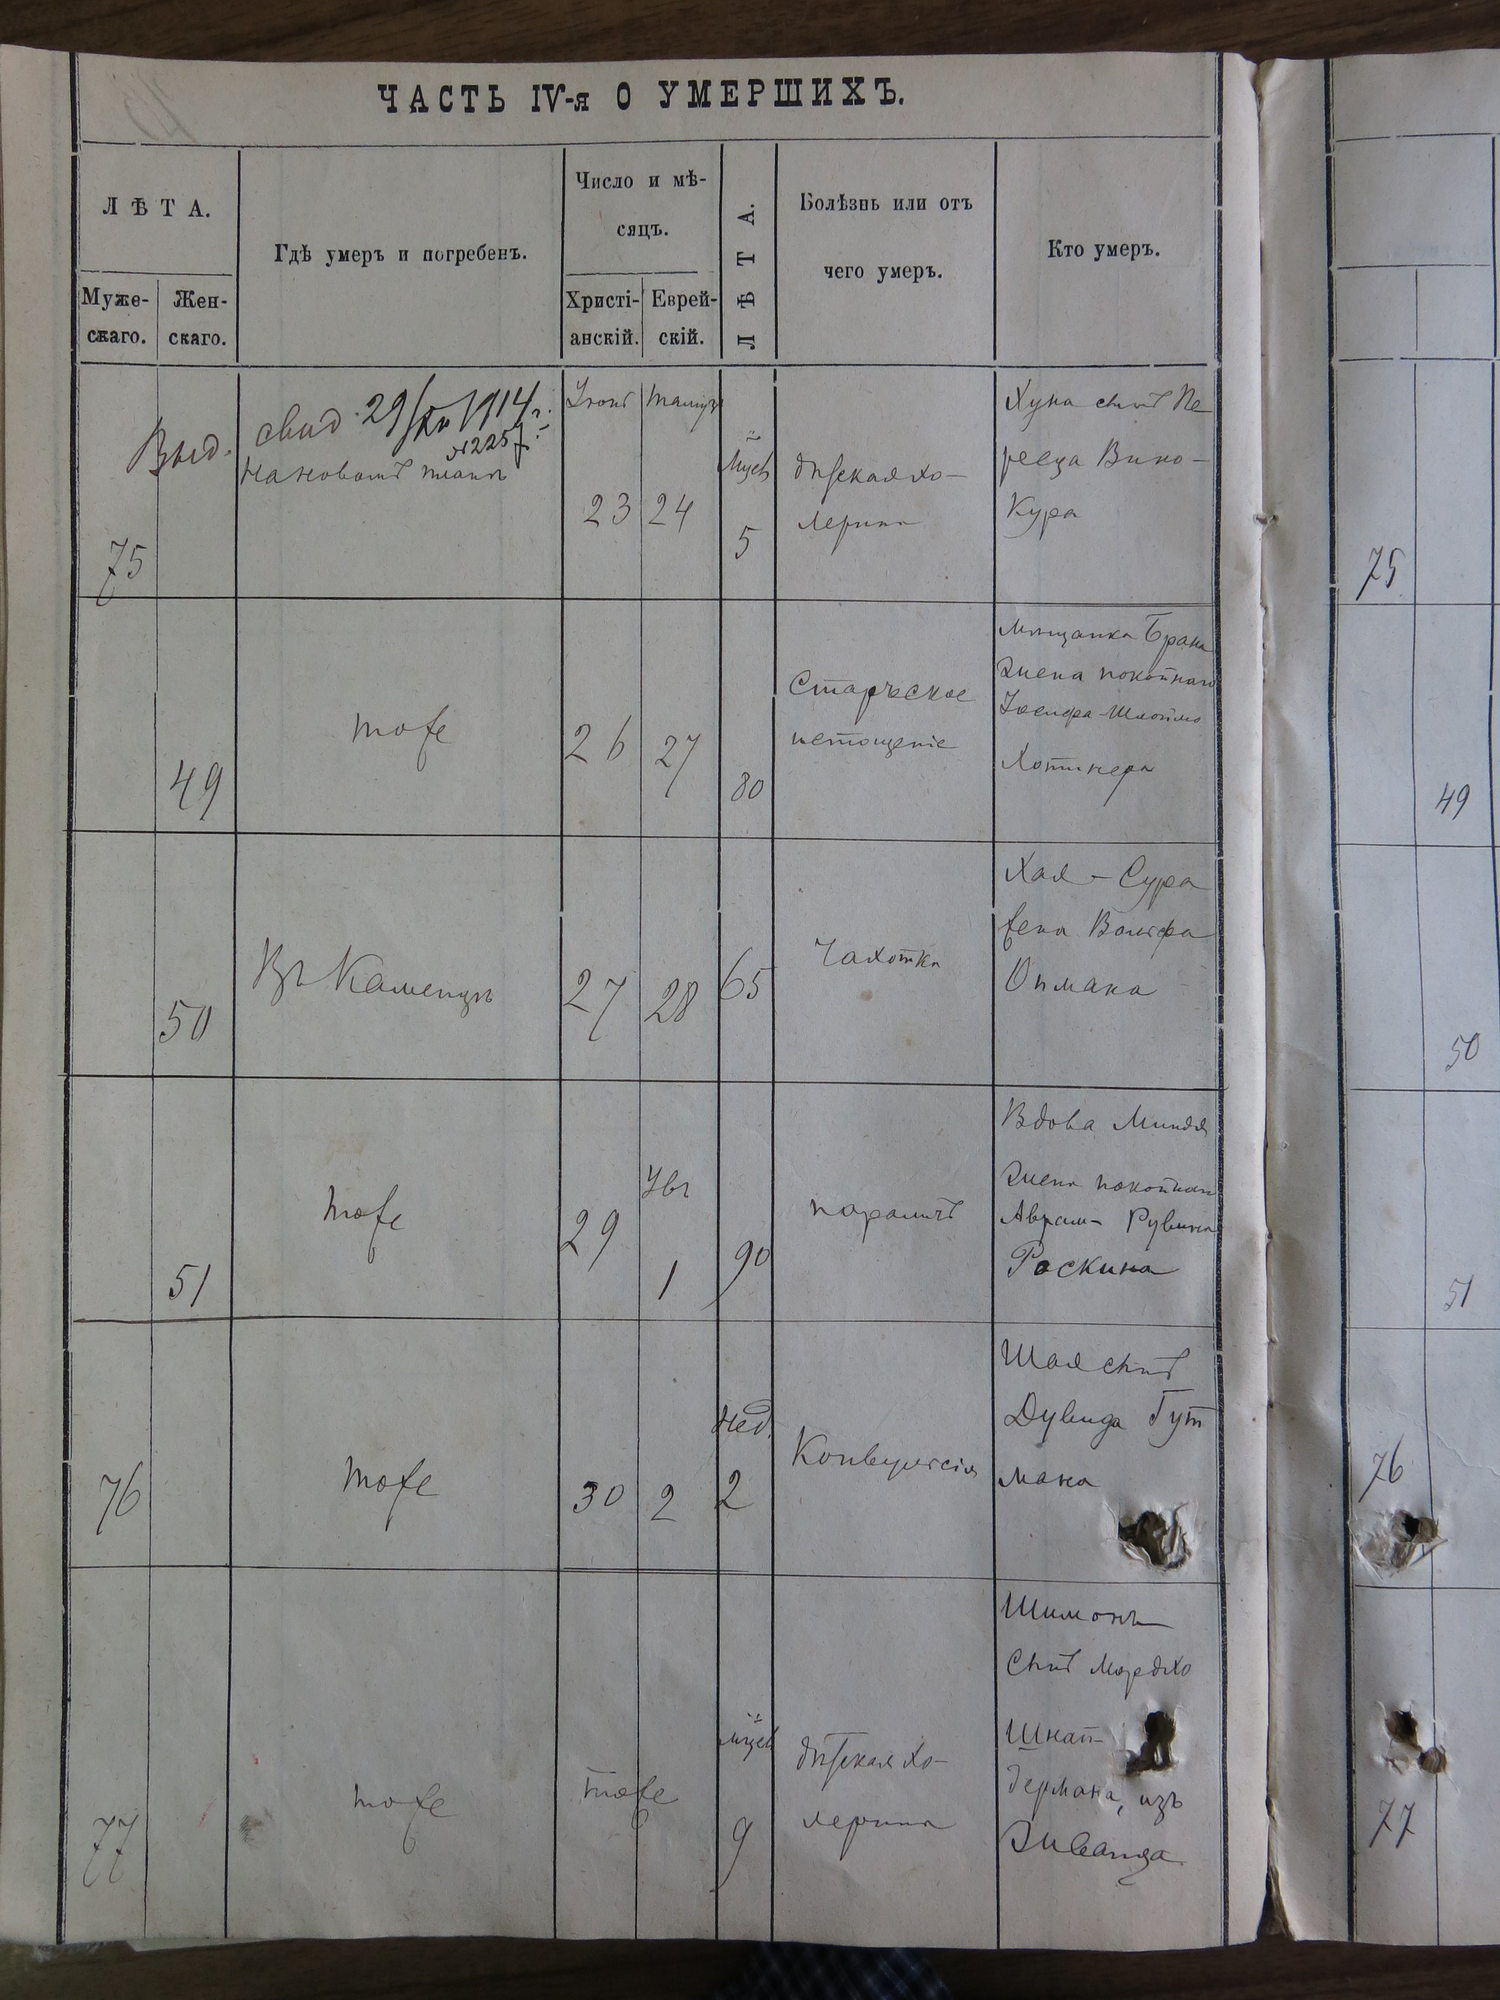 ЧАСТЬ IV-я О УМЕРШИХЪ.
ЛѢТА.
Муже-
скаго.
Жен-
скаго.
Гдѣ умеръ и погребенъ.
Число и мѣ-
сяцъ.
Христі-
анскій.
Еврей-
скій.
ЛѢТА.
Болѣзнь или отъ
чего умеръ.
Кто умеръ.
75
Выд. свид. 29/ 1914 г.
№2257
на новомъ
23
24
5
дѣтская хо-
лерина
Хуна сынъ Пе
реца Вино-
кура
75
49
тоже
26
27
80
Старческое
истощеніе
Мѣщанка Брана
жена покойнаго
Іосифа-Шлоймо
Хотинера
49
50
Въ Каменцѣ
27
28
65
Чахотка
Хая-Сура
жена Вольфа
50
51
тоже
29
1
90
параличъ
Вдова Миндля
жена покойнаго
Аврам-Рувина
Роскина
51
76
тоже
30
2
Нед.
2
Конвульсія
Шая сынъ
Дувида Гут
мана
76
77
тоже
тоже
9
дѣтская хо-
лерина
Шимонъ
сынъ Мордхо
Шнай-
дермана, изъ
Жванца
77